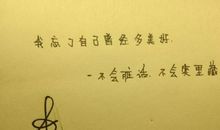 我忘了自己曾经多美好.
-不会脏话.不会笑里藏